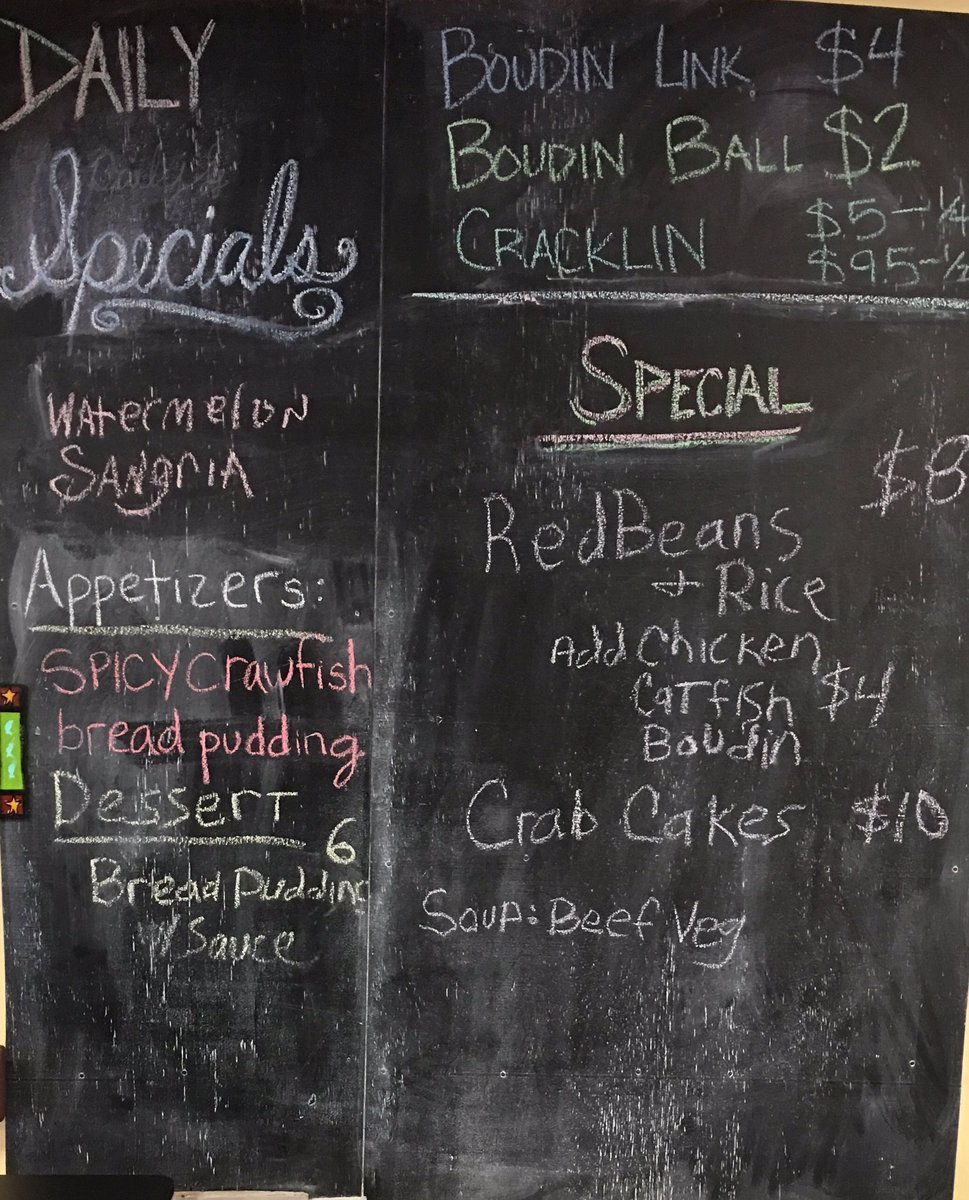 DAILY
Specials
Watermelon
Sangria
Appetizers:
SPICY Crawfish
bread pudding
Dessert
6
Bread Pudding
w/ Sauce
BOUDIN LINK $4
BOUDIN BALL $2
CRACKLIN $5-1/4
$95-1/2
SPECIAL
$8
Red Beans
+ Rice
Add Chicken
Catfish $4
Boudin
Crab Cakes $10
Soup: Beef Veg